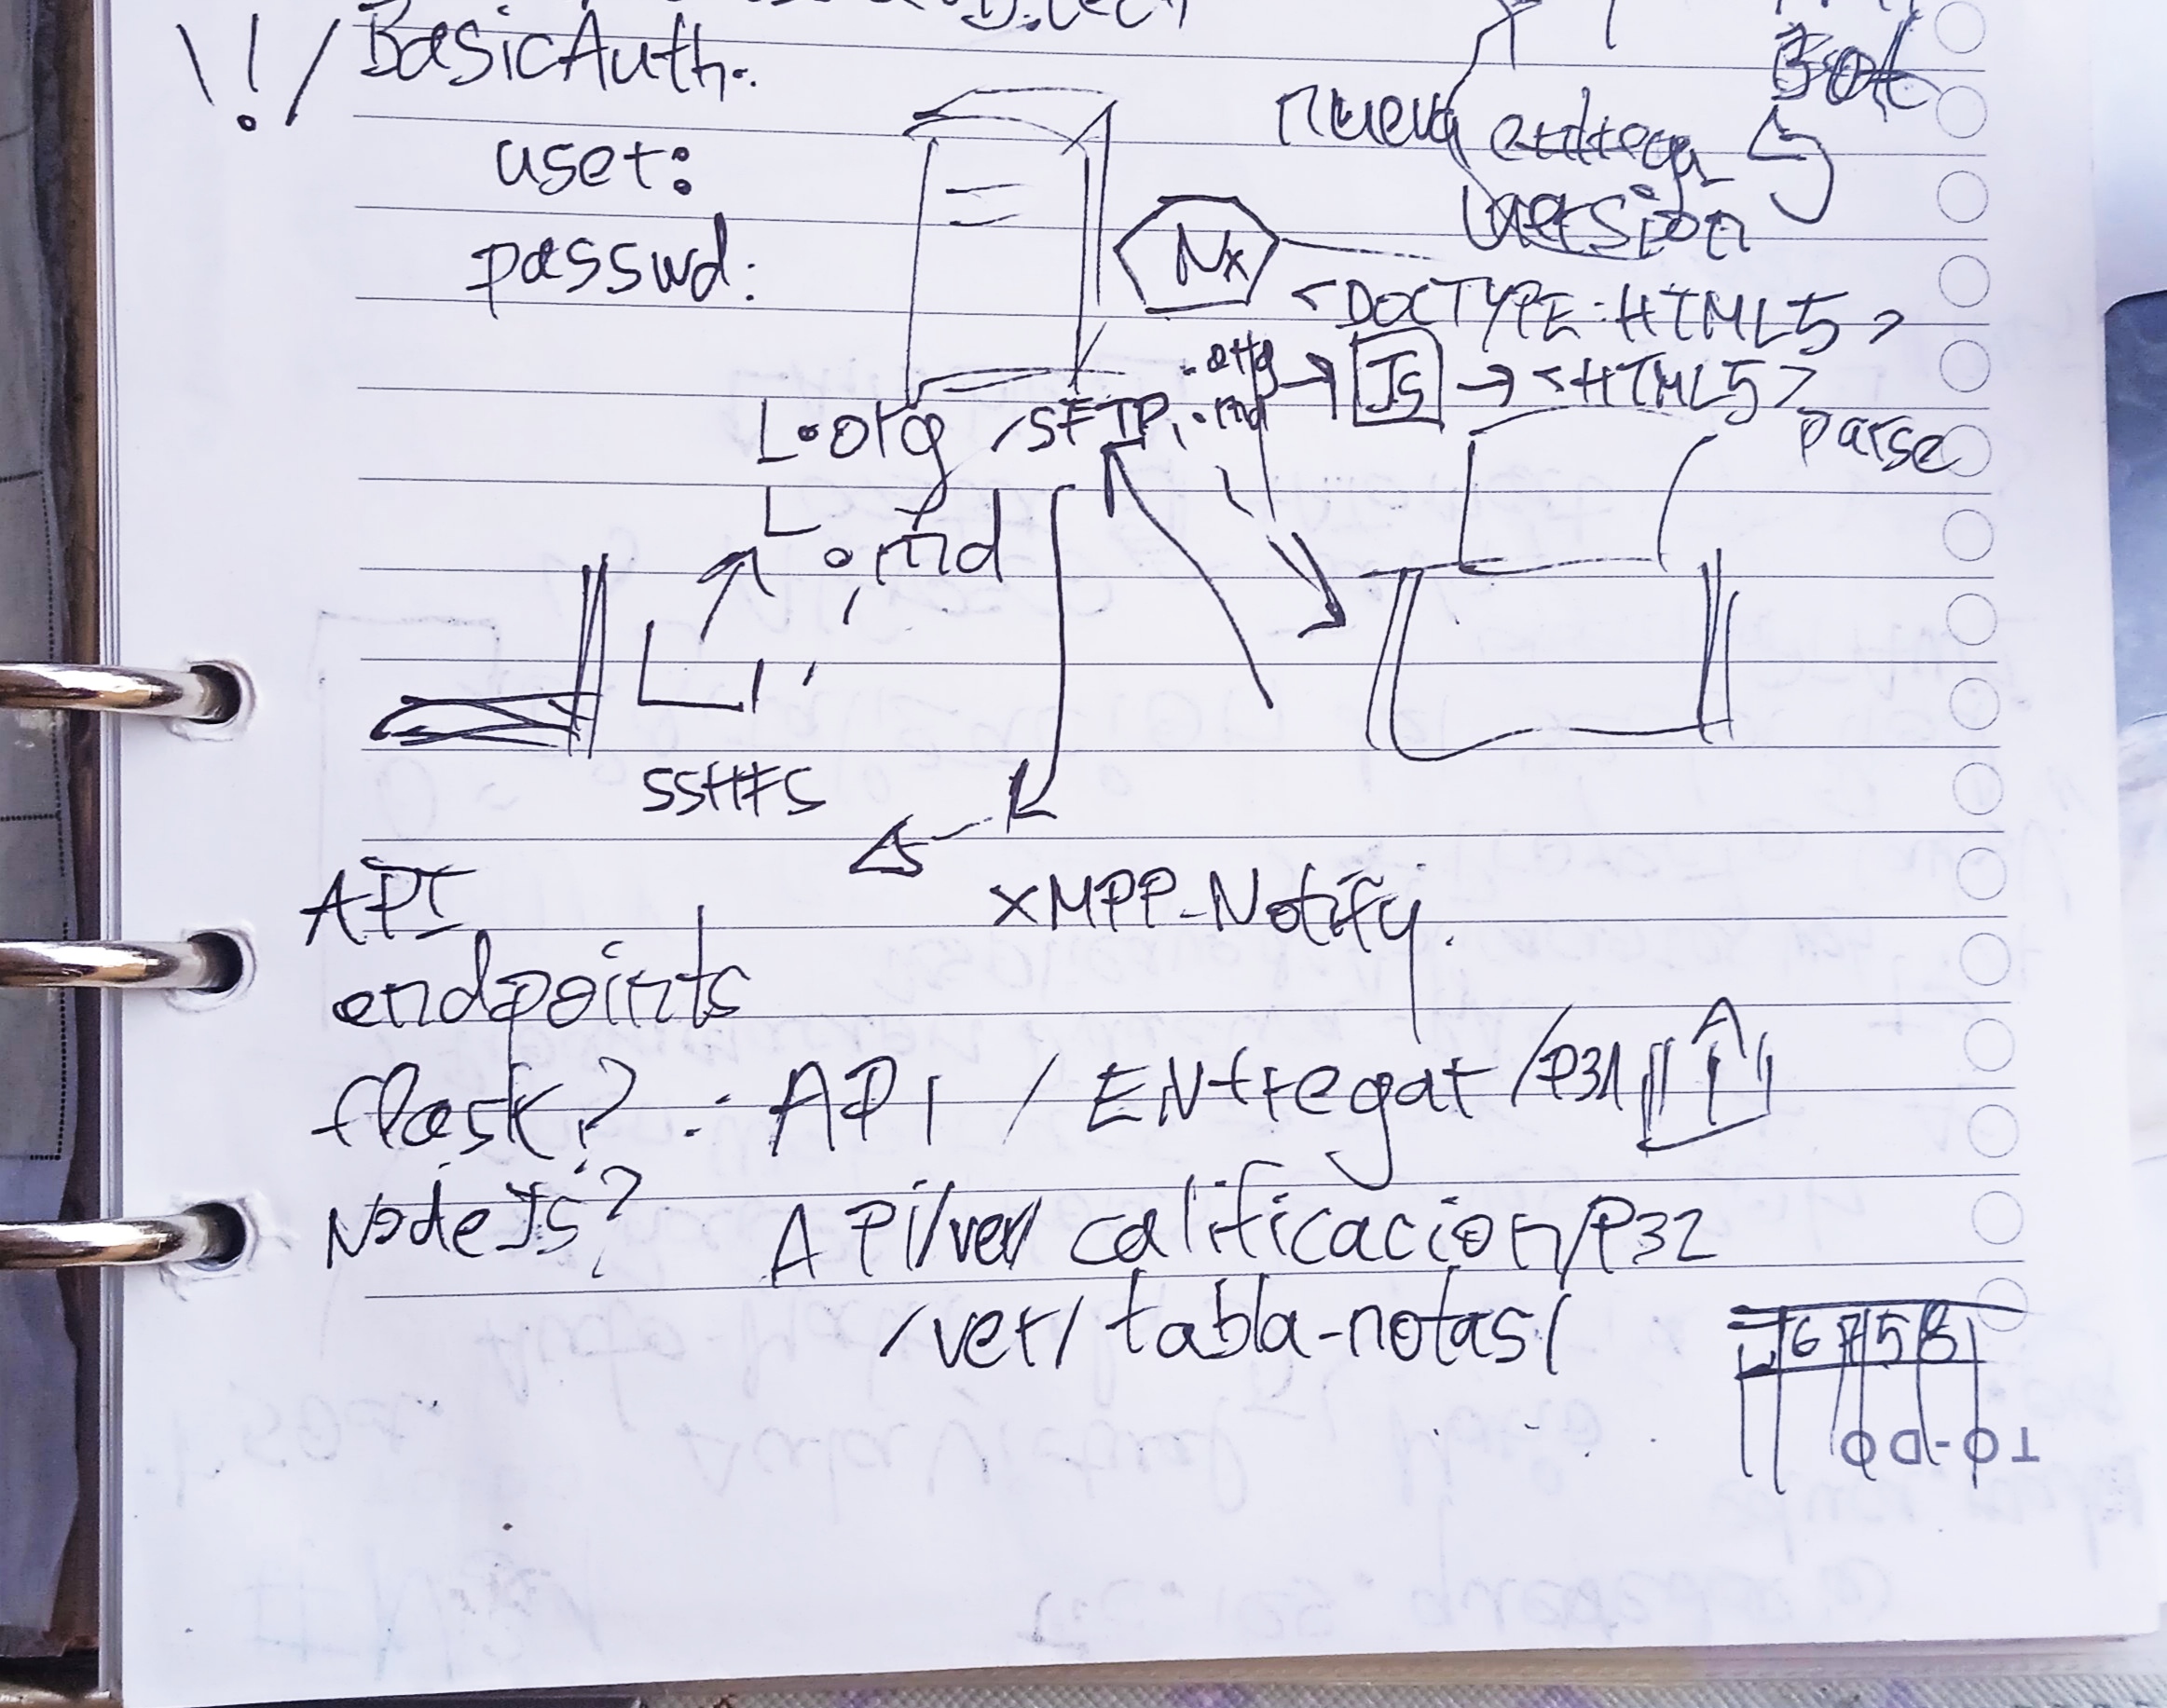 \!/ BasicAuth.
Bot
user:
nueva entrega
version
passwd:
Nx
<DOCTYPE:HTML5>
.org → Js → <HTML5>
.md
parse
L.org /SFTP
L .md
SSHFS
API
XMPP-Notify.
endpoints
flask? : API / ENtregar /P31
NodeJs? API/ver/calificacion/P32
/ver/tabla-notas/
TO-DO